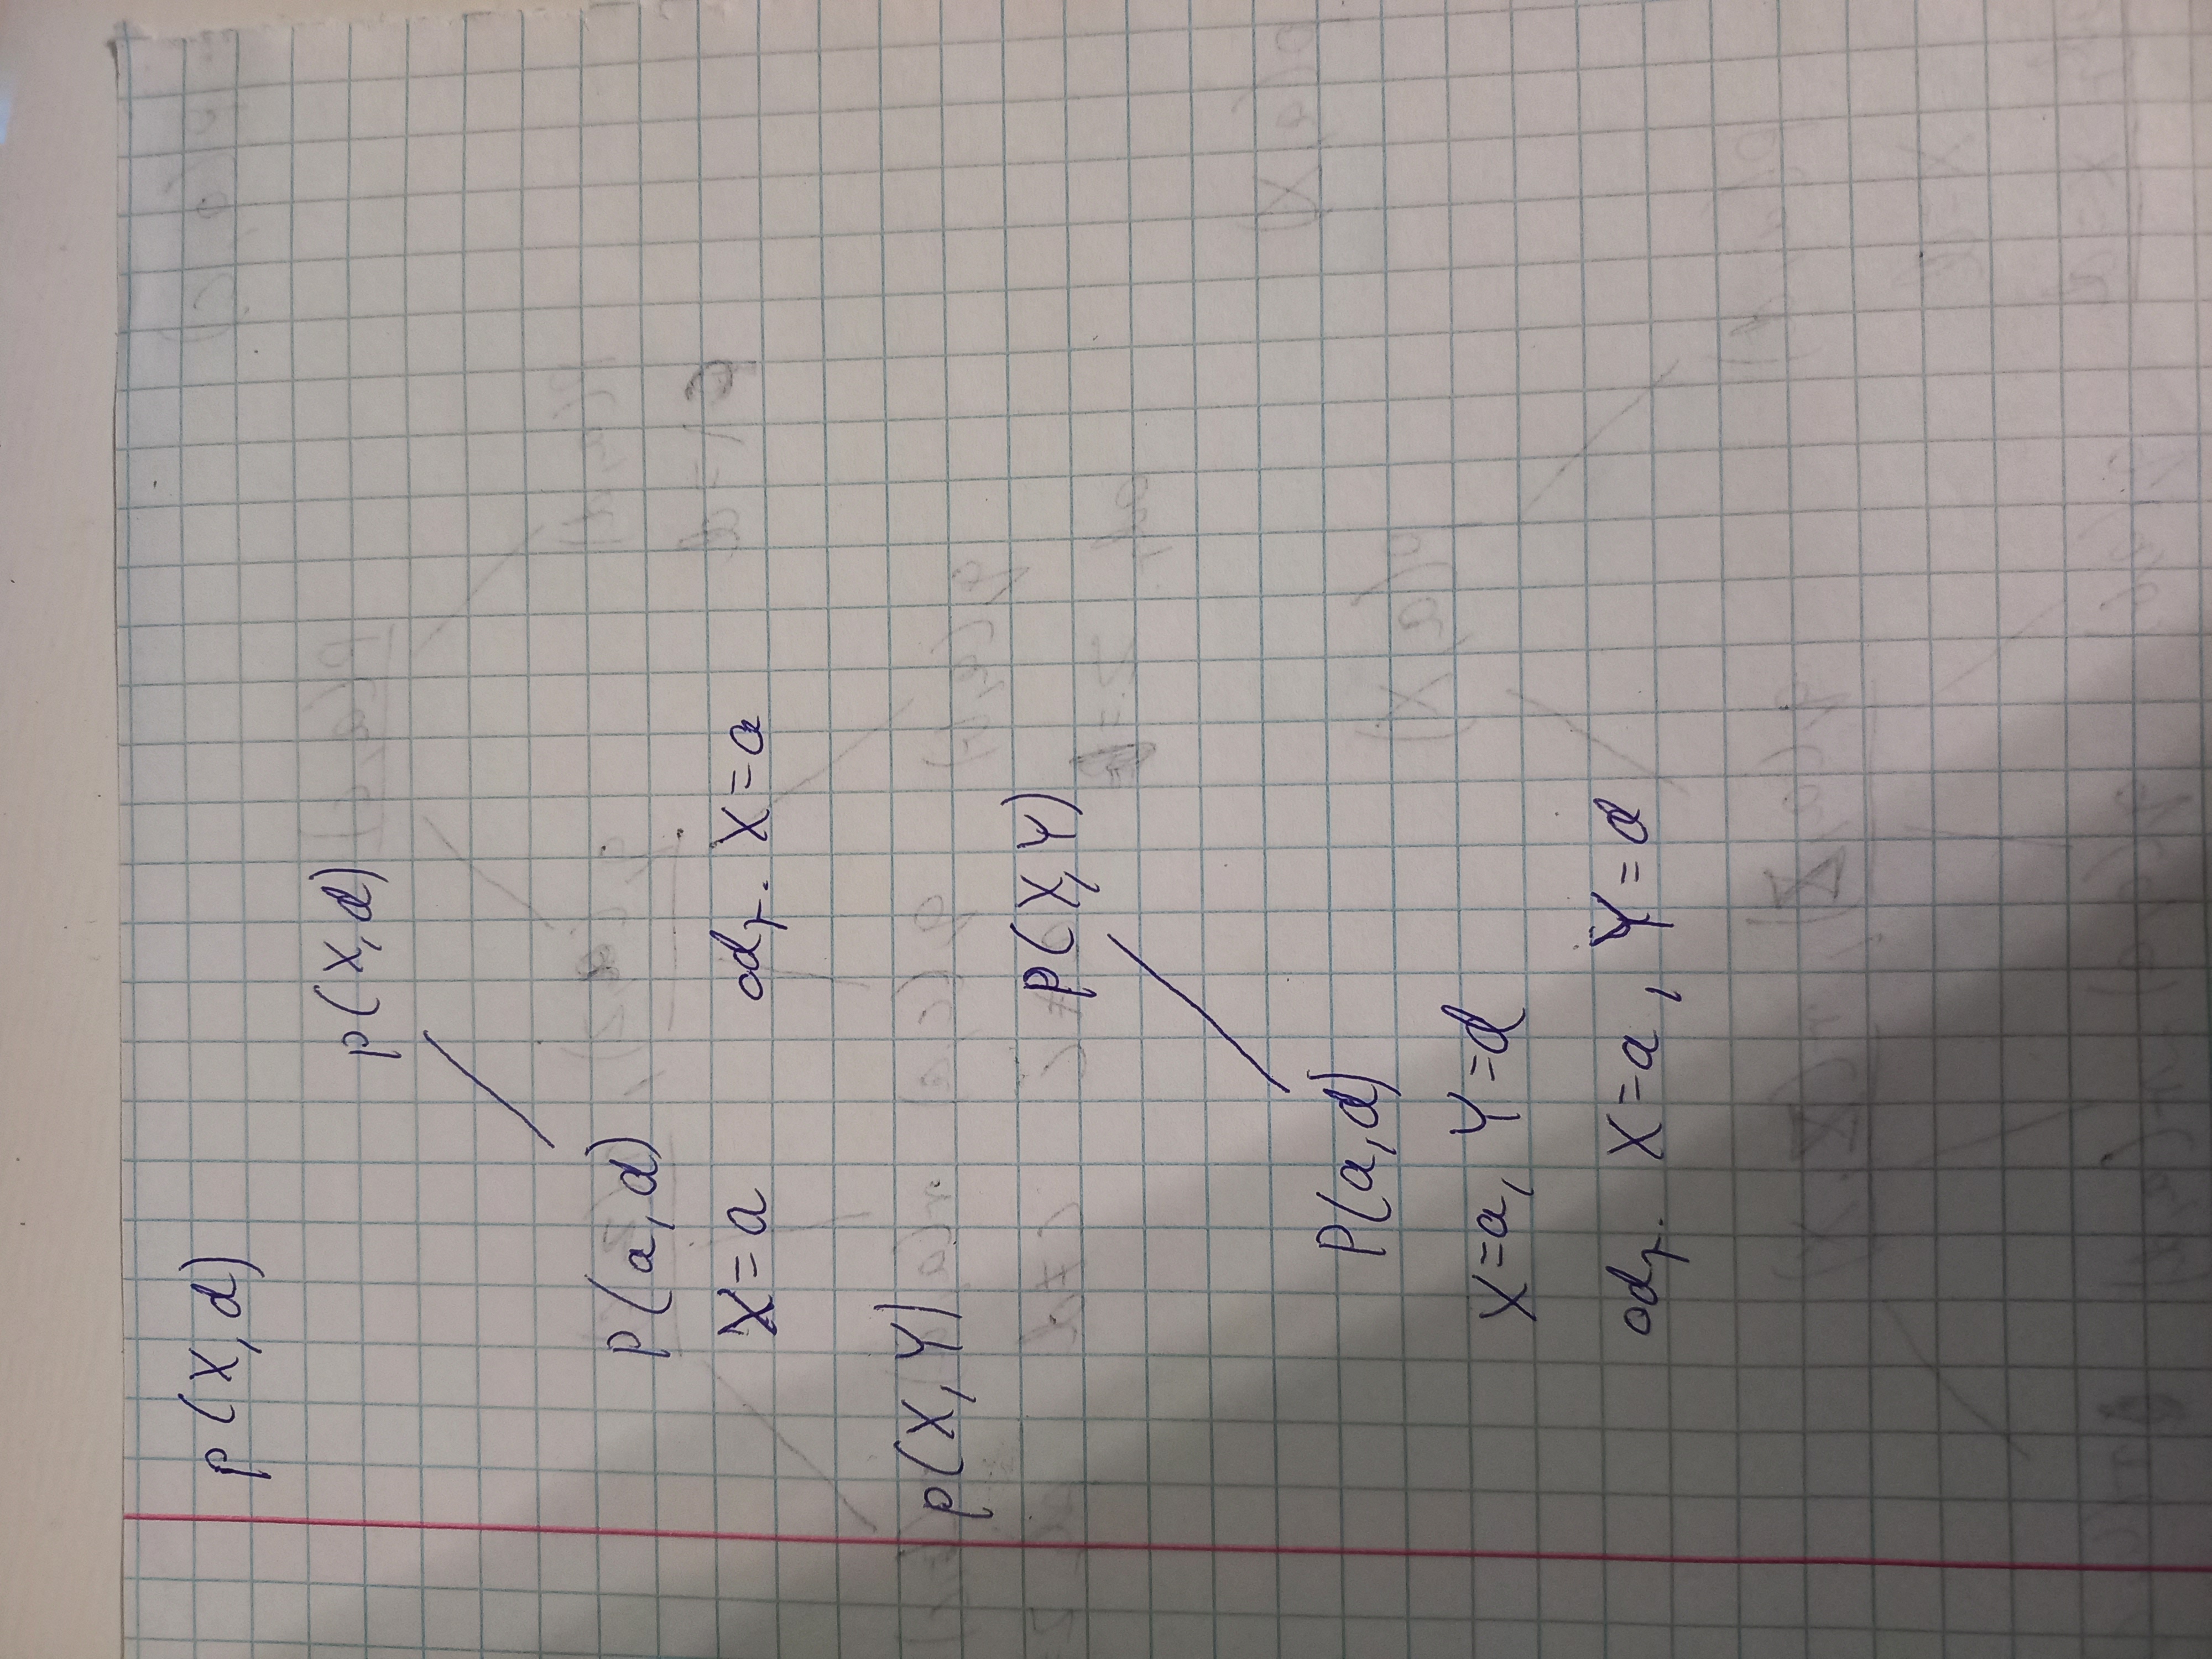 p(X,d)
p(X,d)
P(a,d)
X=a odp. X=a
p(X,Y)
p(X,Y)
P(a,d)
X=a, Y=d
odp. X=a, Y=d